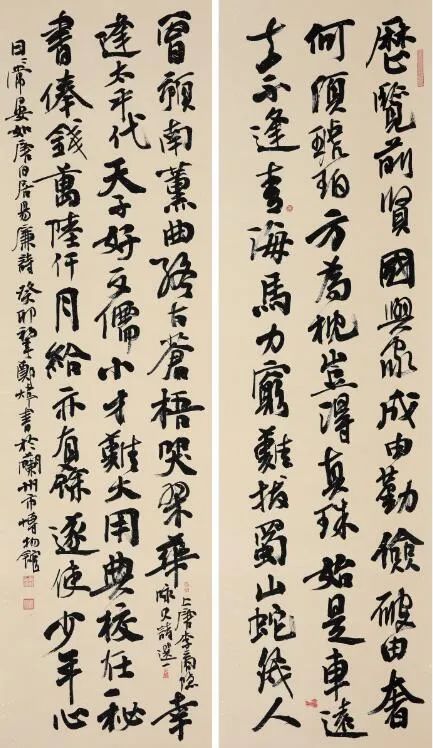 歷覽前賢國與家成由勤儉破由奢
何須琥珀方為枕豈得真珠始是車運
去不逢青海馬力窮難拔蜀山蛇幾人
曾預南薰曲終古蒼梧哭翠華
上唐李商隱
詠史詩選一
幸
逢太平代天子好文儒小才難大用典校在秘
書俸錢萬陸仟月給亦有餘遂使少年心
日々常晏如唐白居易廉詩癸卯鄭煒書於蘭州市博物館